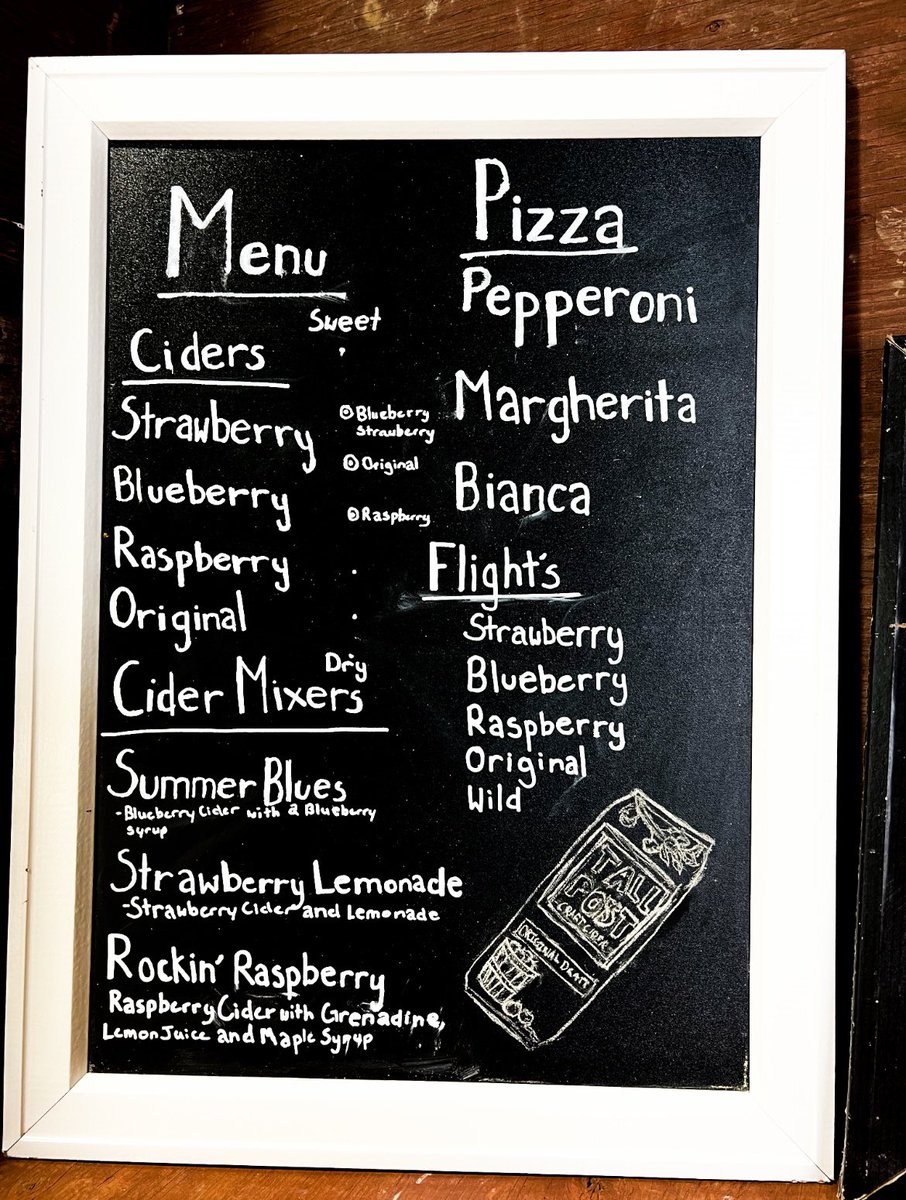 Menu
Sweet
Ciders
Strawberry
Blueberry
Raspberry
Original
Blueberry
Strawberry
Original
Raspberry
Dry
Cider Mixers
Summer Blues
-Blueberry Cider with a Blueberry
syrup
Strawberry Lemonade
-Strawberry Cider and Lemonade
Rockin' Raspberry
Raspberry Cider with Grenadine,
Lemon Juice and Maple Syrup
Pizza
Pepperoni
Margherita
Bianca
Flight's
Strawberry
Blueberry
Raspberry
Original
Wild
TALL
POST
CRAFT CIDER
ORIGINAL